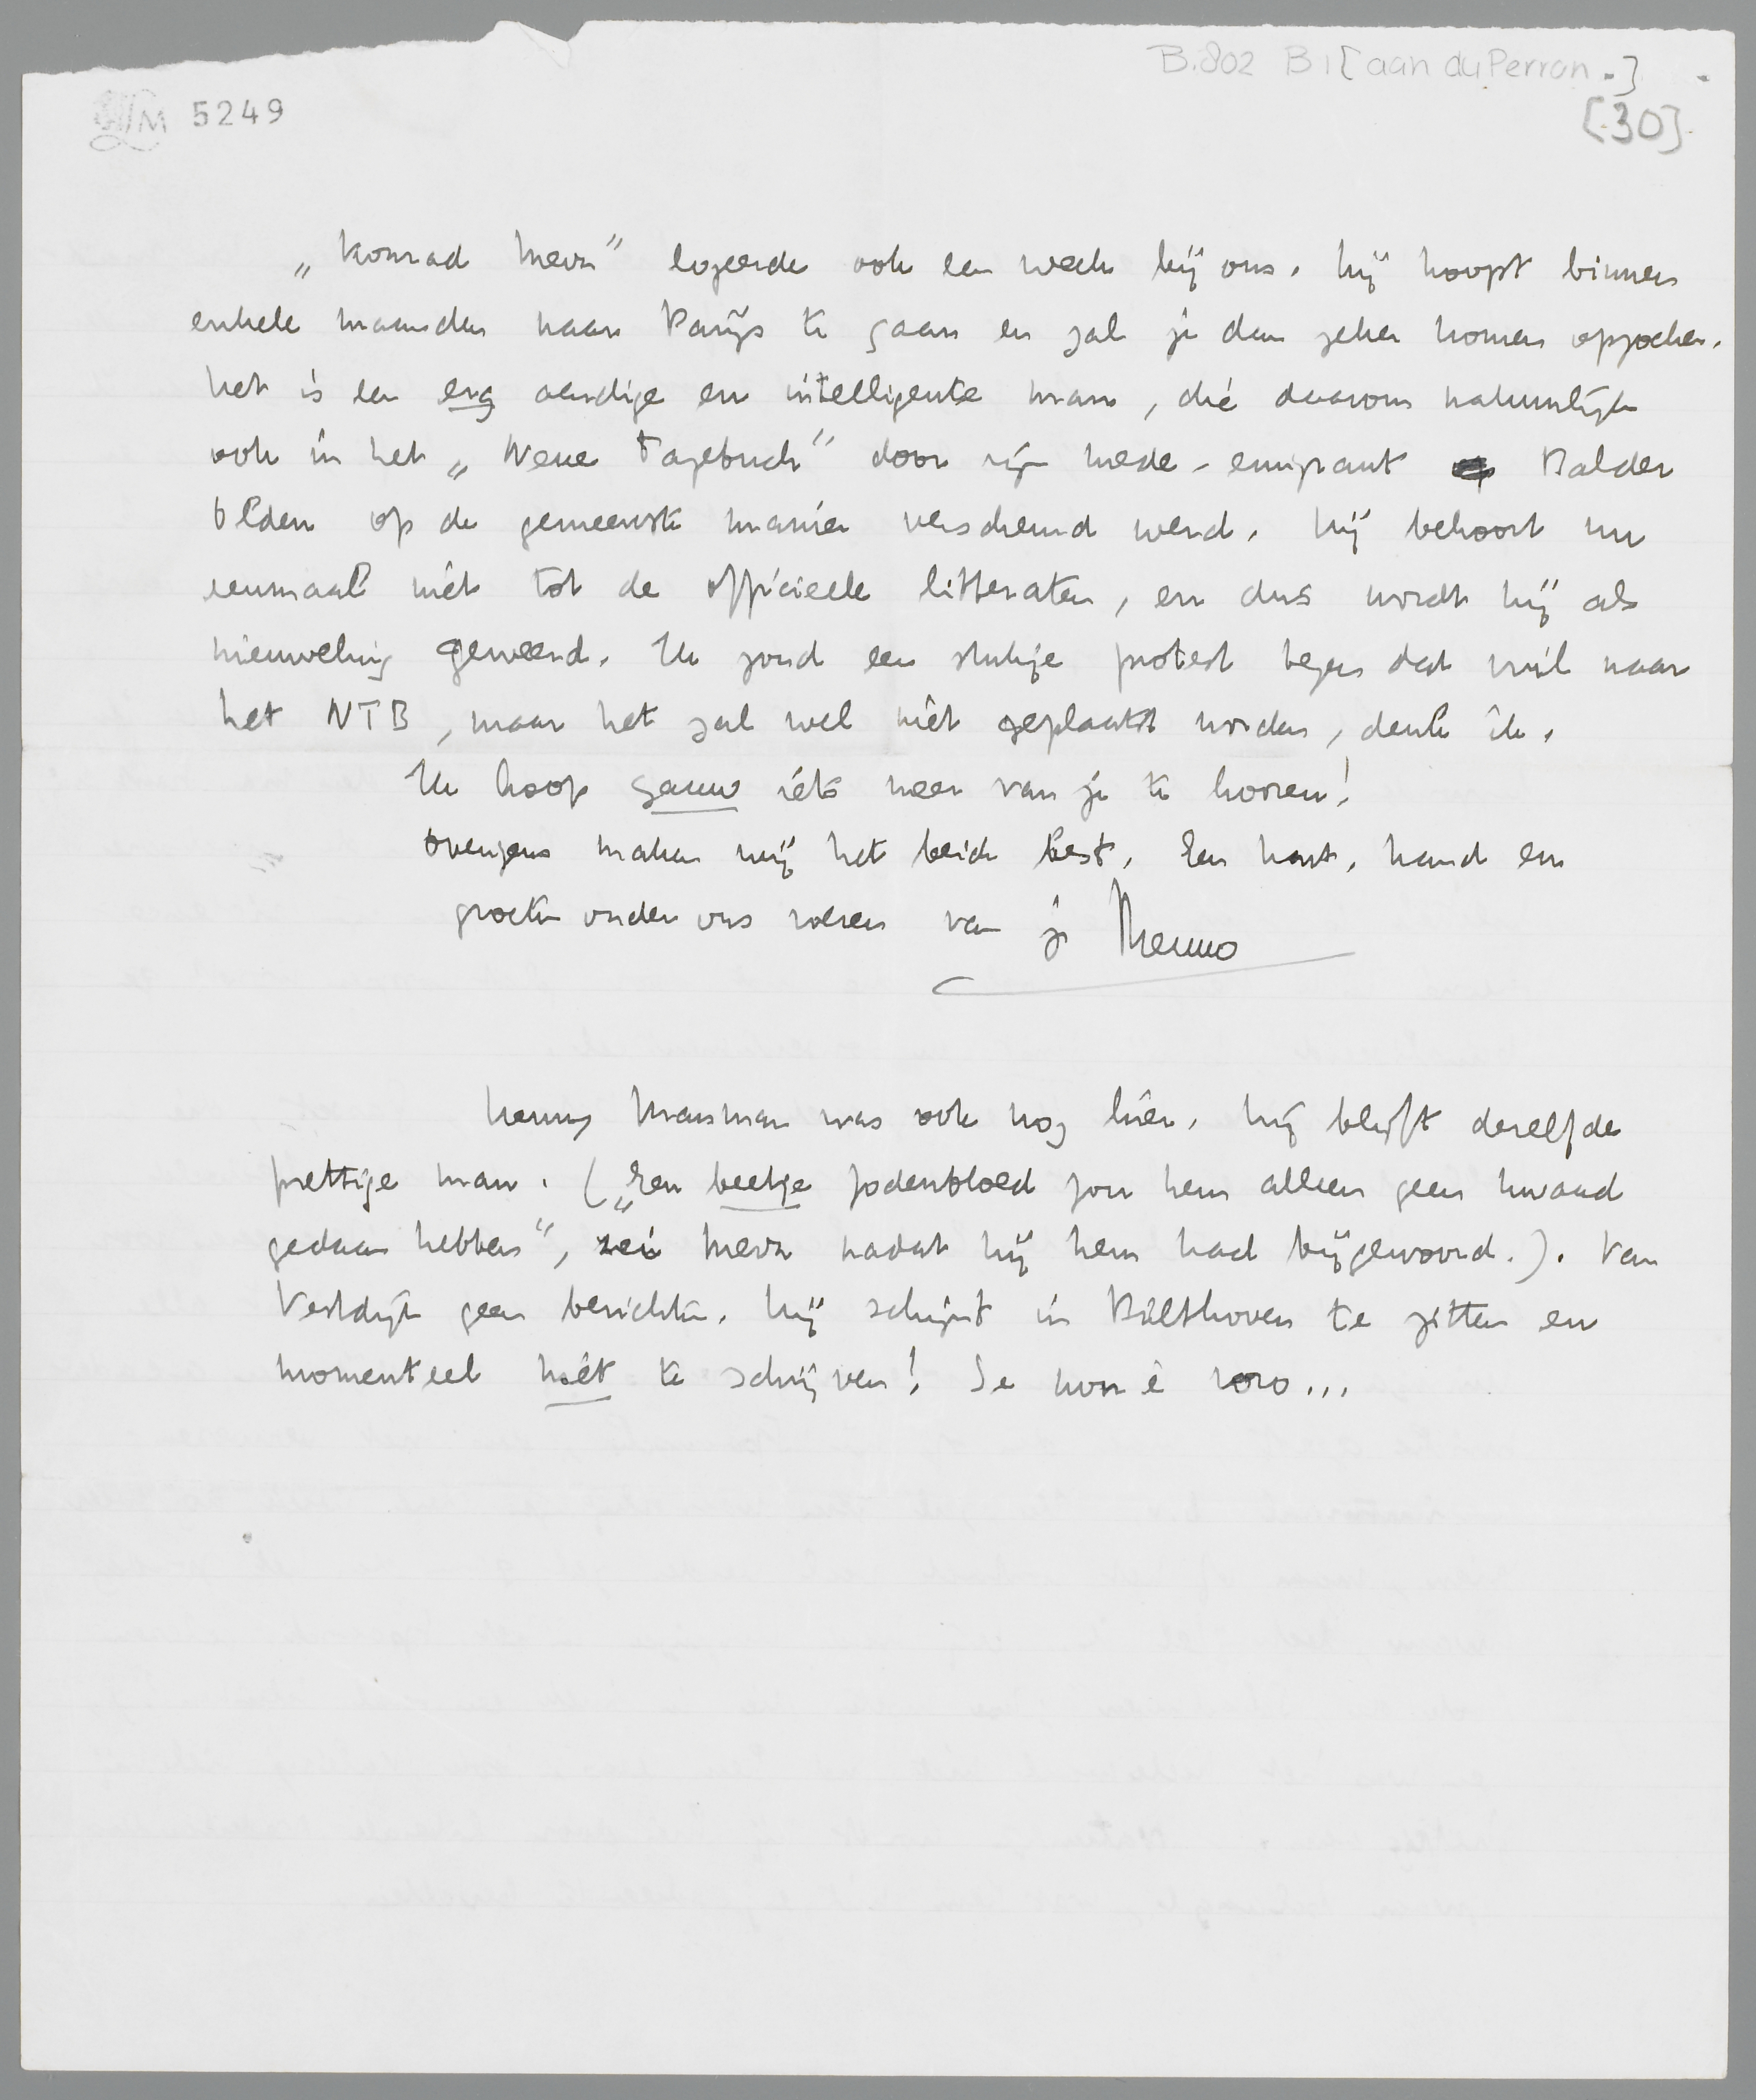 B.802 B I [aan du Perron.]
LM 5249
[30]
„Konrad Merz" logeerde ook een week bij ons. Hij hoopt binnen
enkele maanden naar Parijs te gaan en zal je dan zeker komen opzoeken.
Het is een erg aardige en intelligente man, die daarom natuurlijk
ook in het „Neue Tagebuch" door zijn mede-emigrant Balder
Olden op de gemeenste manier verscheurd werd. Hij behoort nu
eenmaal niet tot de officieele litteraten, en dus wordt hij als
nieuweling geweerd. Ik zond een stukje protest tegen dat vuil naar
het NTB, maar het zal wel niet geplaatst worden, denk ik.
Ik hoop gauw iets meer van je te hooren!
Overigens maken wij het beide best. Een hart. hand en
groeten onder ons voeren van je Menno
Henny Marsman was ook nog hier. Hij blijft dezelfde
prettige man. („Een beetje Jodenbloed zou hem alleen geen kwaad
gedaan hebben", zei Merz nadat hij hem had bijgewoond.). Van
Vestdijk geen berichten. Hij schijnt in Bilthoven te zitten en
momenteel niet te schrijven! Se non è vero...